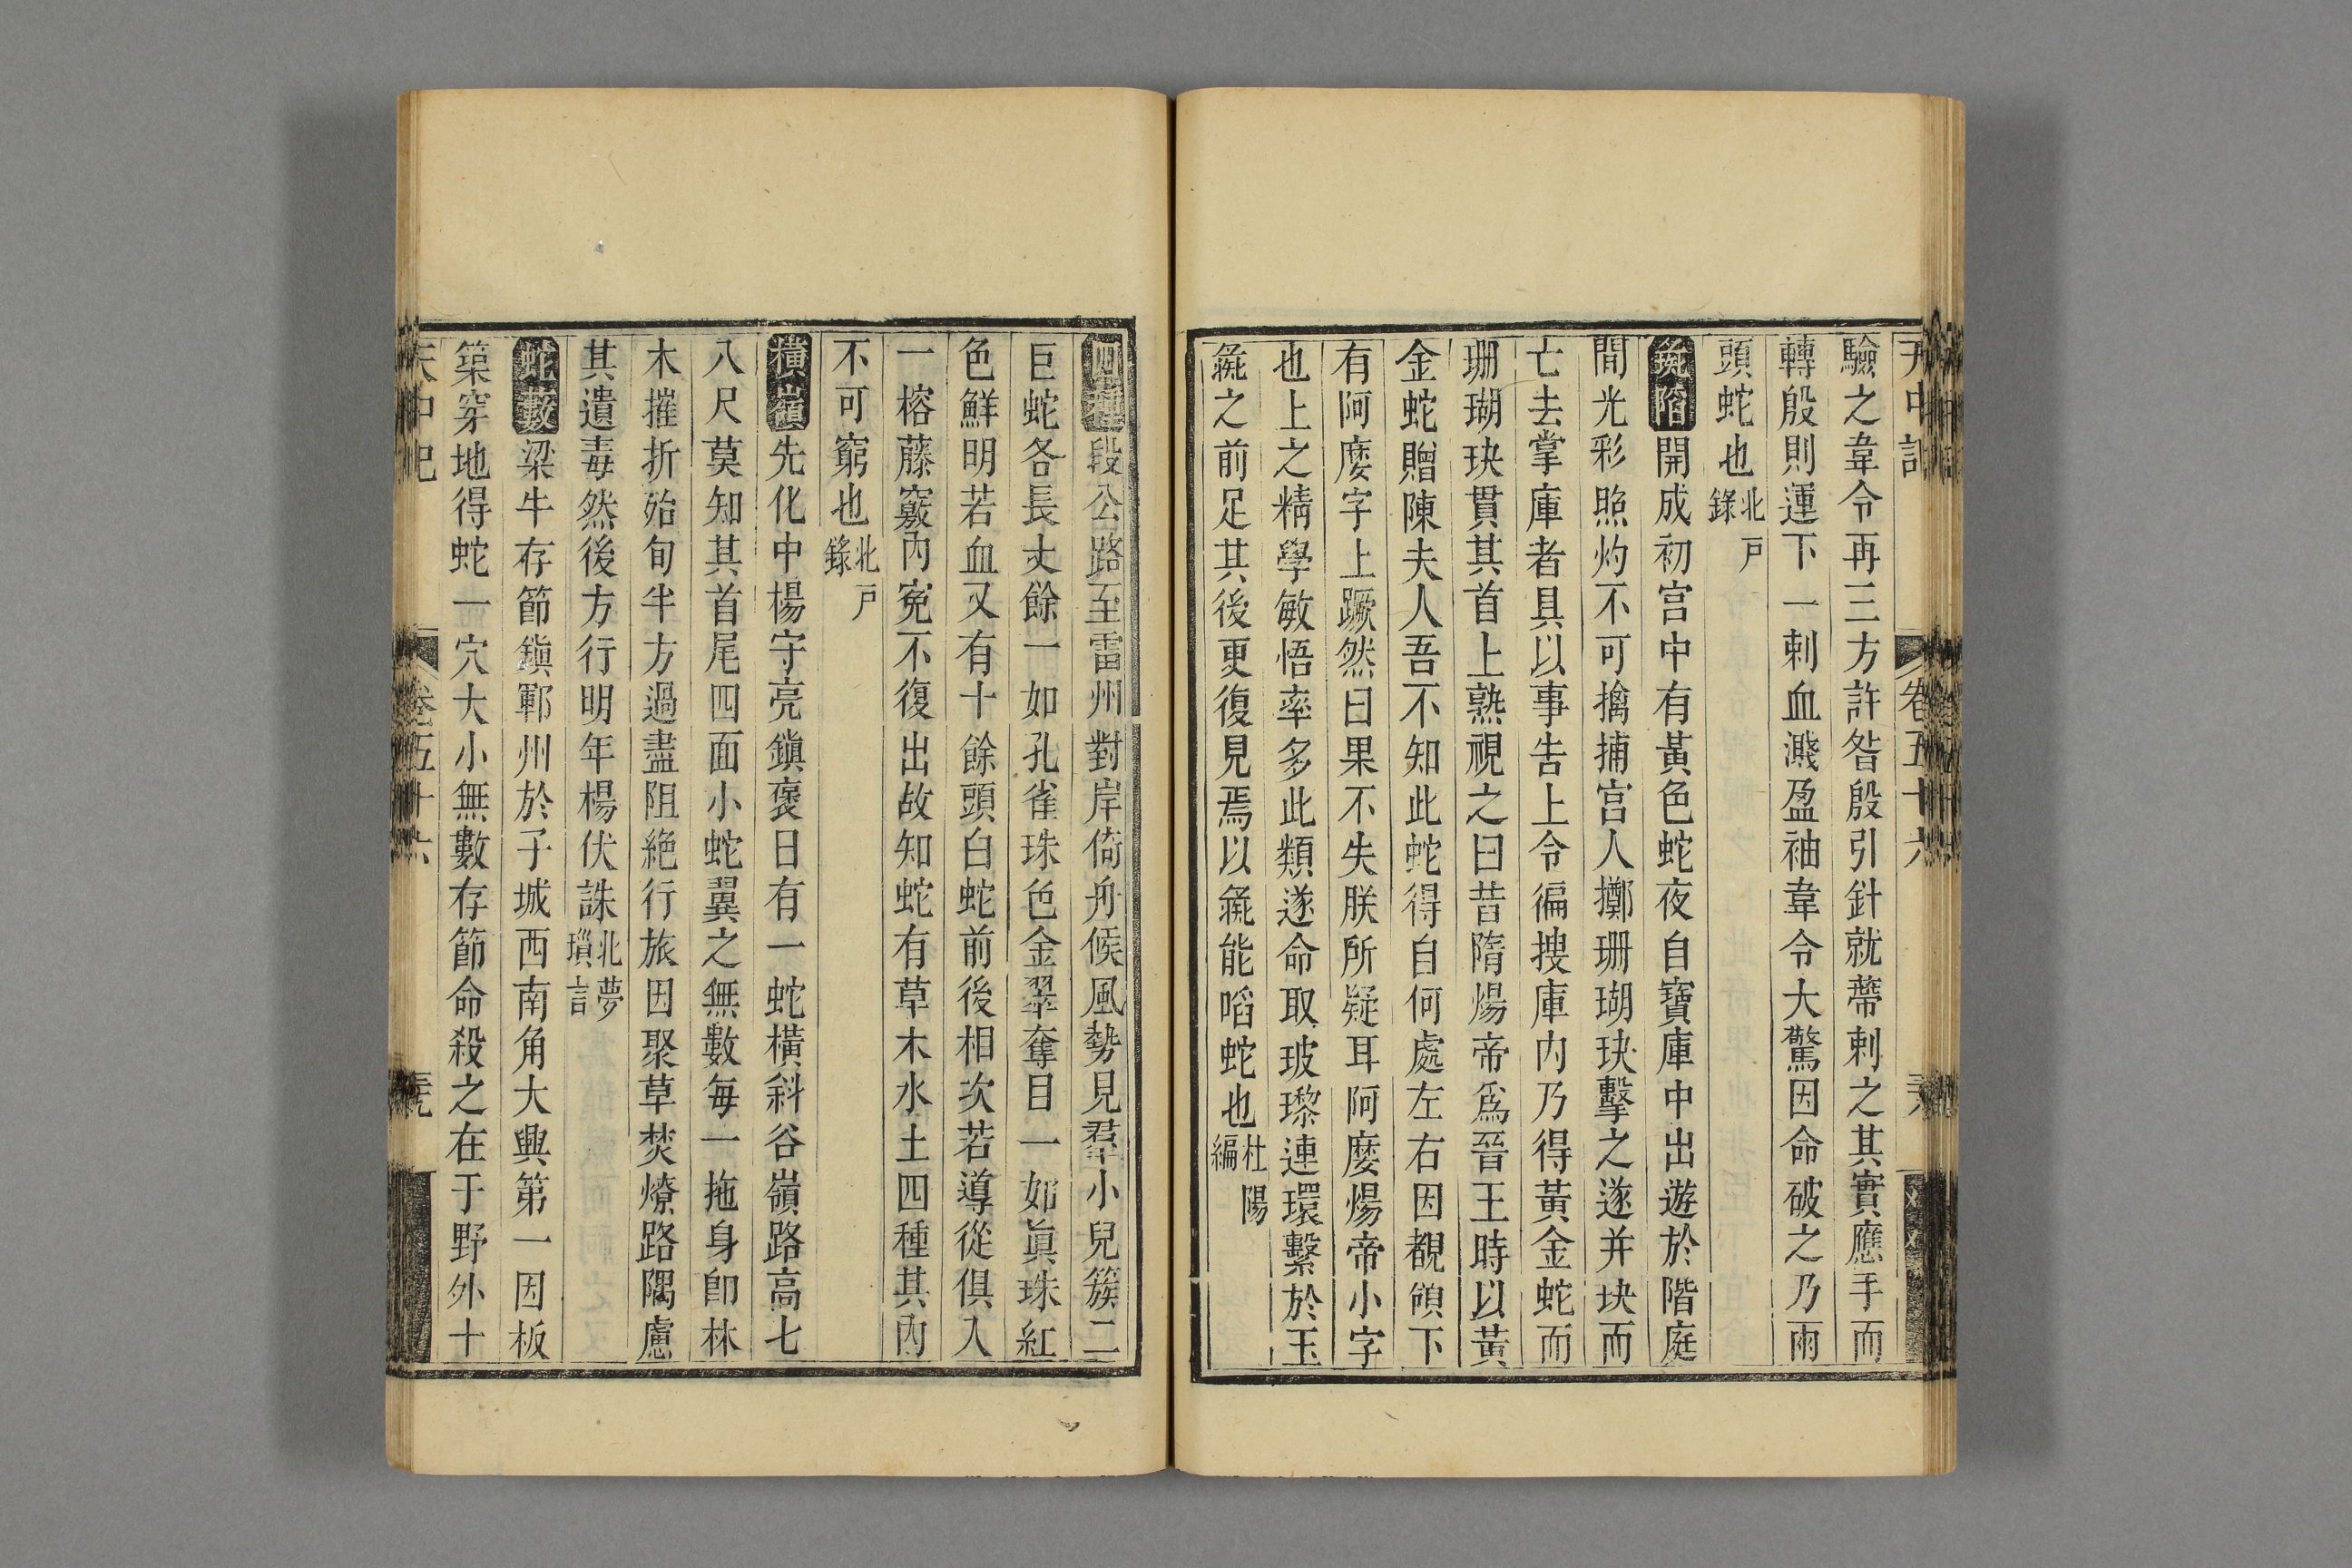 天中記 卷五十六 三八
驗之韋令再三方許咎殷引針就蔕刺之其實應手而
轉殷則運下一刺血濺盈袖韋令大驚因命破之乃兩
頭蛇也北戶錄
毚陷開成初宫中有黃色蛇夜自寶庫中出遊於階庭
間光彩照灼不可擒捕宫人擲珊瑚玦擊之遂并玦而
亡去掌庫者具以事告上令徧搜庫内乃得黃金蛇而
珊瑚玦貫其首上熟視之曰昔隋煬帝爲晉王時以黃
金蛇贈陳夫人吾不知此蛇得自何處左右因覩頷下
有阿麼字上蹶然曰果不失朕所疑耳阿麼煬帝小字
也上之精學敏悟率多此類遂命取玻瓈連環繫於玉
毚之前足其後更復見焉以毚能啗蛇也杜陽編
四種段公路至雷州對岸倚舟候風勢見羣小兒簇二
巨蛇各長丈餘一如孔雀珠色金翠奪目一如眞珠紅
色鮮明若血又有十餘頭白蛇前後相次若導從俱入
一榕藤竅内寃不復出故知蛇有草木水土四種其内
不可窮也北戶錄
橫嶺先化中楊守亮鎮褒日有一蛇橫斜谷嶺路高七
八尺莫知其首尾四面小蛇翼之無數每一拖身卽林
木摧折殆旬半方過盡阻絶行旅因聚草焚燎路隅慮
其遺毒然後方行明年楊伏誅北夢瑣言
蛇數梁牛存節鎮鄆州於子城西南角大興第一因板
築穿地得蛇一穴大小無數存節命殺之在于野外十
天中記 卷五十六 三九